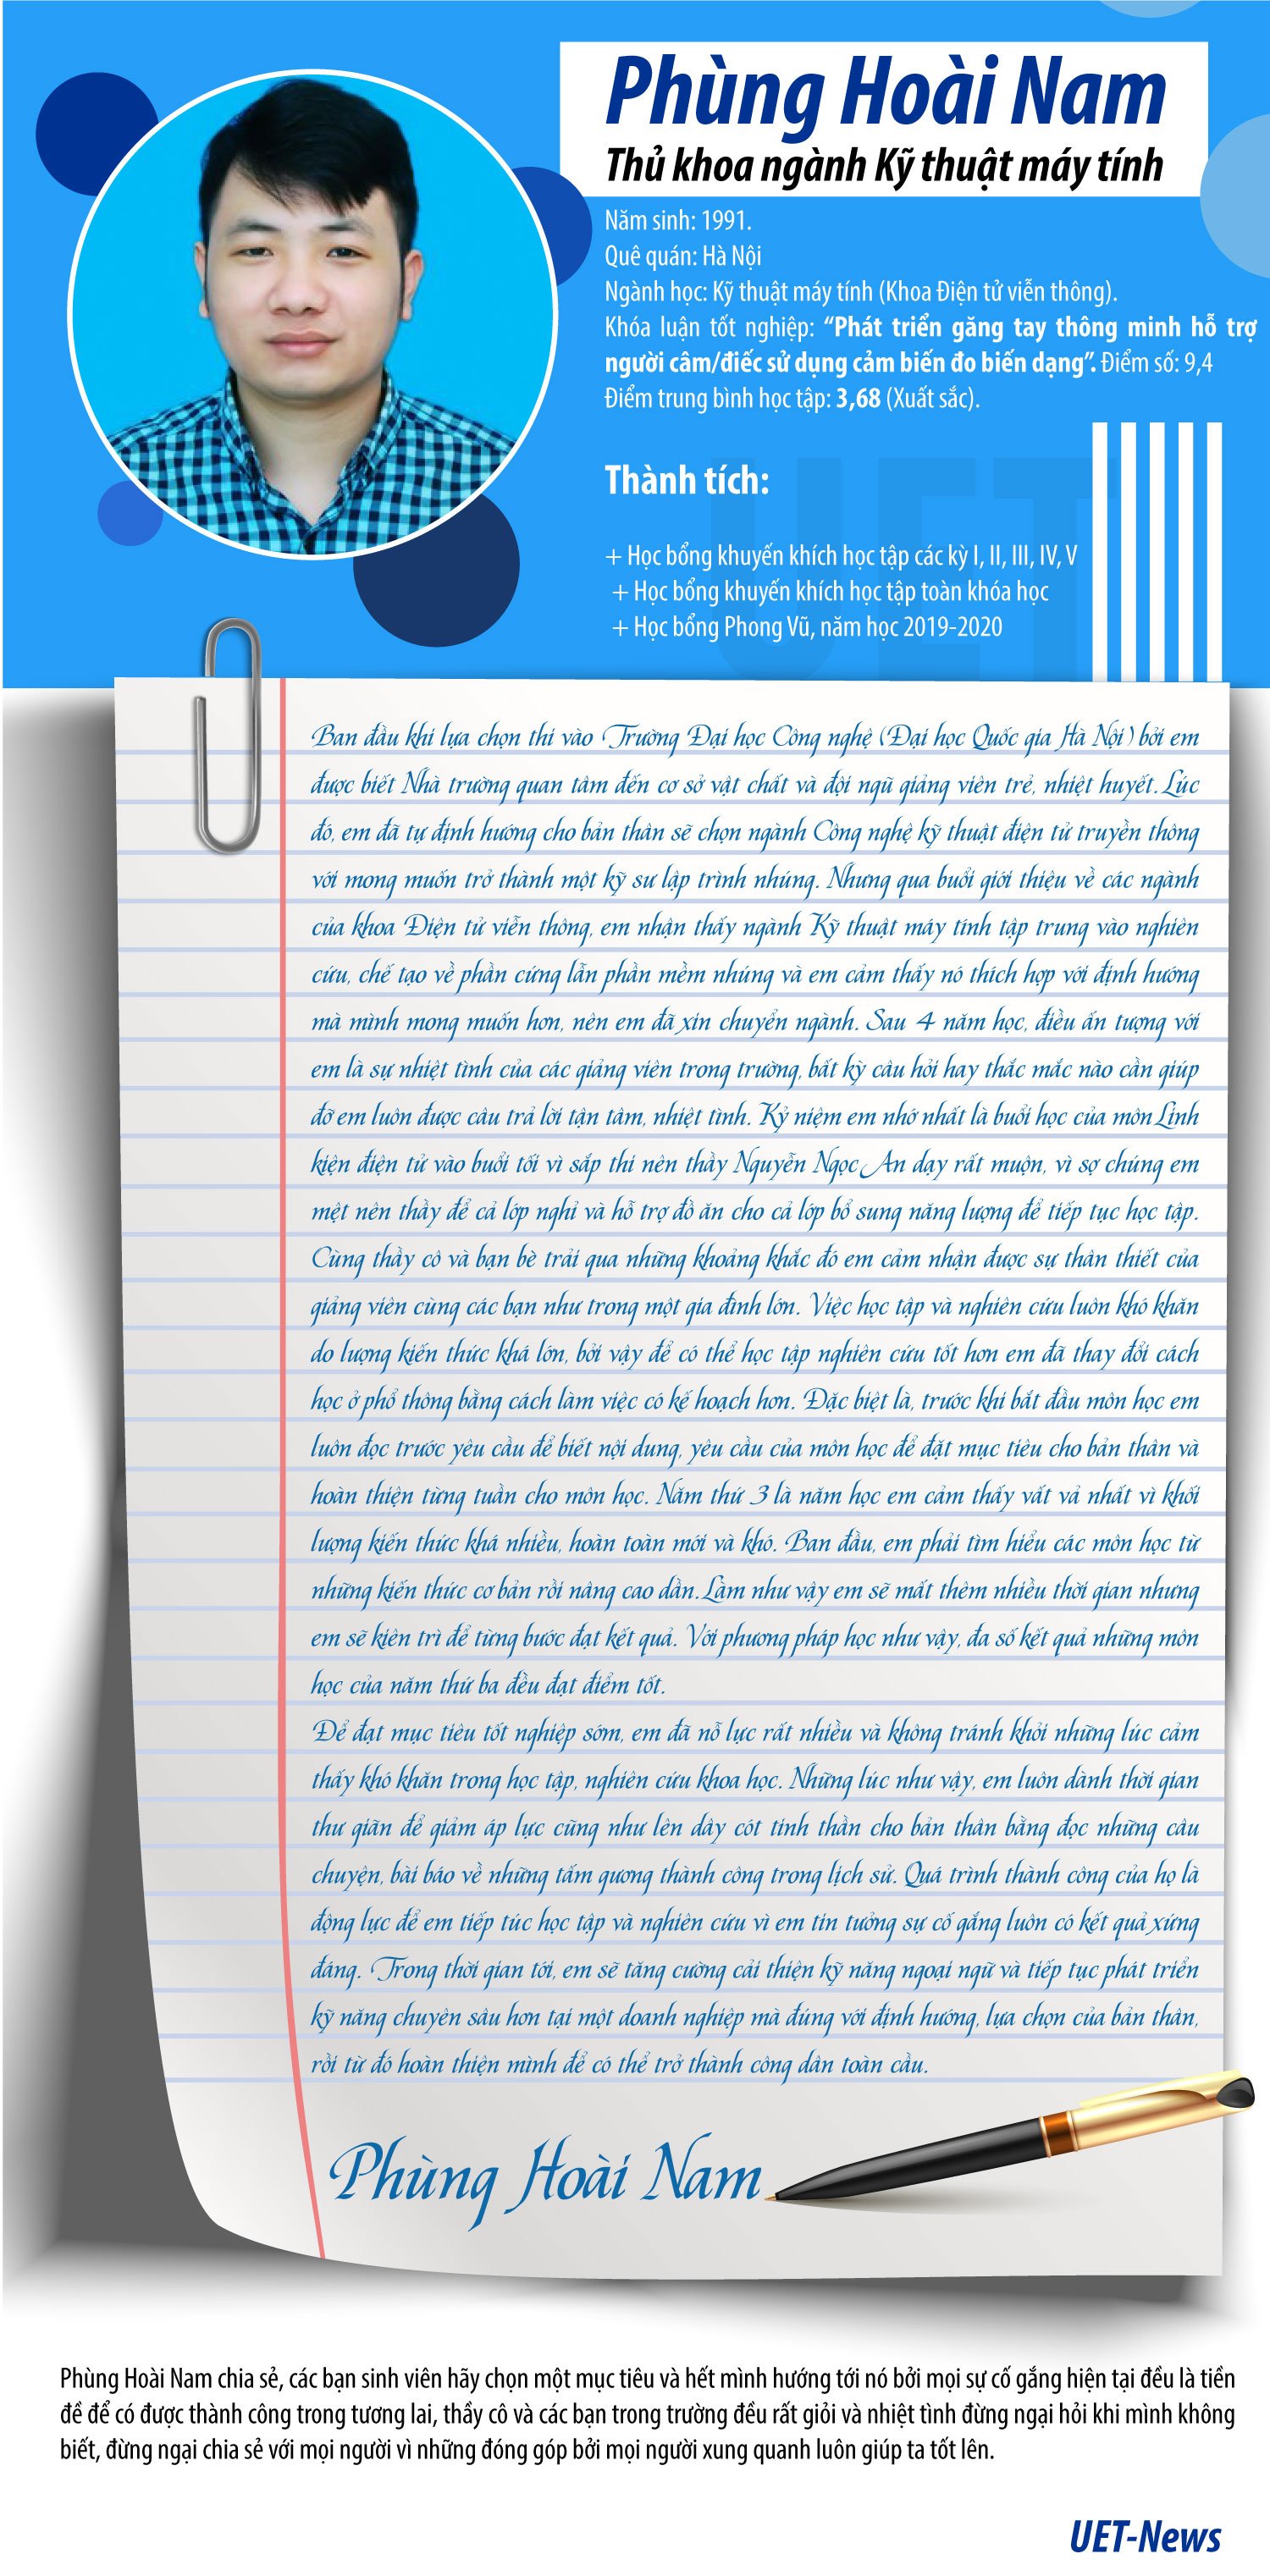 Phùng Hoài Nam
Thủ khoa ngành Kỹ thuật máy tính
Năm sinh: 1991.
Quê quán: Hà Nội
Ngành học: Kỹ thuật máy tính (Khoa Điện tử viễn thông).
Khóa luận tốt nghiệp: “Phát triển găng tay thông minh hỗ trợ
người câm/điếc sử dụng cảm biến đo biến dạng”. Điểm số: 9,4
Điểm trung bình học tập: 3,68 (Xuất sắc).
UET
Thành tích:
+ Học bổng khuyến khích học tập các kỳ I, II, III, IV, V
+ Học bổng khuyến khích học tập toàn khóa học
+ Học bổng Phong Vũ, năm học 2019-2020
Ban đầu khi lựa chọn thi vào Trường Đại học Công nghệ (Đại học Quốc gia Hà Nội) bởi em
được biết Nhà trường quan tâm đến cơ sở vật chất và đội ngũ giảng viên trẻ, nhiệt huyết. Lúc
đó, em đã tự định hướng cho bản thân sẽ chọn ngành Công nghệ kỹ thuật điện tử truyền thông
với mong muốn trở thành một kỹ sư lập trình nhúng. Nhưng qua buổi giới thiệu về các ngành
của khoa Điện tử viễn thông, em nhận thấy ngành Kỹ thuật máy tính tập trung vào nghiên
cứu, chế tạo về phần cứng lẫn phần mềm nhúng và em cảm thấy nó thích hợp với định hướng
mà mình mong muốn hơn, nên em đã xin chuyển ngành. Sau 4 năm học, điều ấn tượng với
em là sự nhiệt tình của các giảng viên trong trường, bất kỳ câu hỏi hay thắc mắc nào cần giúp
đỡ em luôn được câu trả lời tận tâm, nhiệt tình. Kỷ niệm em nhớ nhất là buổi học của môn Linh
kiện điện tử vào buổi tối vì sắp thi nên thầy Nguyễn Ngọc An dạy rất muộn, vì sợ chúng em
mệt nên thầy để cả lớp nghỉ và hỗ trợ đồ ăn cho cả lớp bổ sung năng lượng để tiếp tục học tập.
Cùng thầy cô và bạn bè trải qua những khoảng khắc đó em cảm nhận được sự thân thiết của
giảng viên cùng các bạn như trong một gia đình lớn. Việc học tập và nghiên cứu luôn khó khăn
do lượng kiến thức khá lớn, bởi vậy để có thể học tập nghiên cứu tốt hơn em đã thay đổi cách
học ở phổ thông bằng cách làm việc có kế hoạch hơn. Đặc biệt là, trước khi bắt đầu môn học em
luôn đọc trước yêu cầu để biết nội dung, yêu cầu của môn học để đặt mục tiêu cho bản thân và
hoàn thiện từng tuần cho môn học. Năm thứ 3 là năm học em cảm thấy vất vả nhất vì khối
lượng kiến thức khá nhiều, hoàn toàn mới và khó. Ban đầu, em phải tìm hiểu các môn học từ
những kiến thức cơ bản rồi nâng cao dần. Làm như vậy em sẽ mất thêm nhiều thời gian nhưng
em sẽ kiên trì để từng bước đạt kết quả. Với phương pháp học như vậy, đa số kết quả những môn
học của năm thứ ba đều đạt điểm tốt.
Để đạt mục tiêu tốt nghiệp sớm, em đã nỗ lực rất nhiều và không tránh khỏi những lúc cảm
thấy khó khăn trong học tập, nghiên cứu khoa học. Những lúc như vậy, em luôn dành thời gian
thư giãn để giảm áp lực cũng như lên dây cót tinh thần cho bản thân bằng đọc những câu
chuyện, bài báo về những tấm gương thành công trong lịch sử. Quá trình thành công của họ là
động lực để em tiếp túc học tập và nghiên cứu vì em tin tưởng sự cố gắng luôn có kết quả xứng
đáng. Trong thời gian tới, em sẽ tăng cường cải thiện kỹ năng ngoại ngữ và tiếp tục phát triển
kỹ năng chuyên sâu hơn tại một doanh nghiệp mà đúng với định hướng, lựa chọn của bản thân,
rồi từ đó hoàn thiện mình để có thể trở thành công dân toàn cầu.
Phùng Hoài Nam
Phùng Hoài Nam chia sẻ, các bạn sinh viên hãy chọn một mục tiêu và hết mình hướng tới nó bởi mọi sự cố gắng hiện tại đều là tiền
đề để có được thành công trong tương lai, thầy cô và các bạn trong trường đều rất giỏi và nhiệt tình đừng ngại hỏi khi mình không
biết, đừng ngại chia sẻ với mọi người vì những đóng góp bởi mọi người xung quanh luôn giúp ta tốt lên.
UET-News